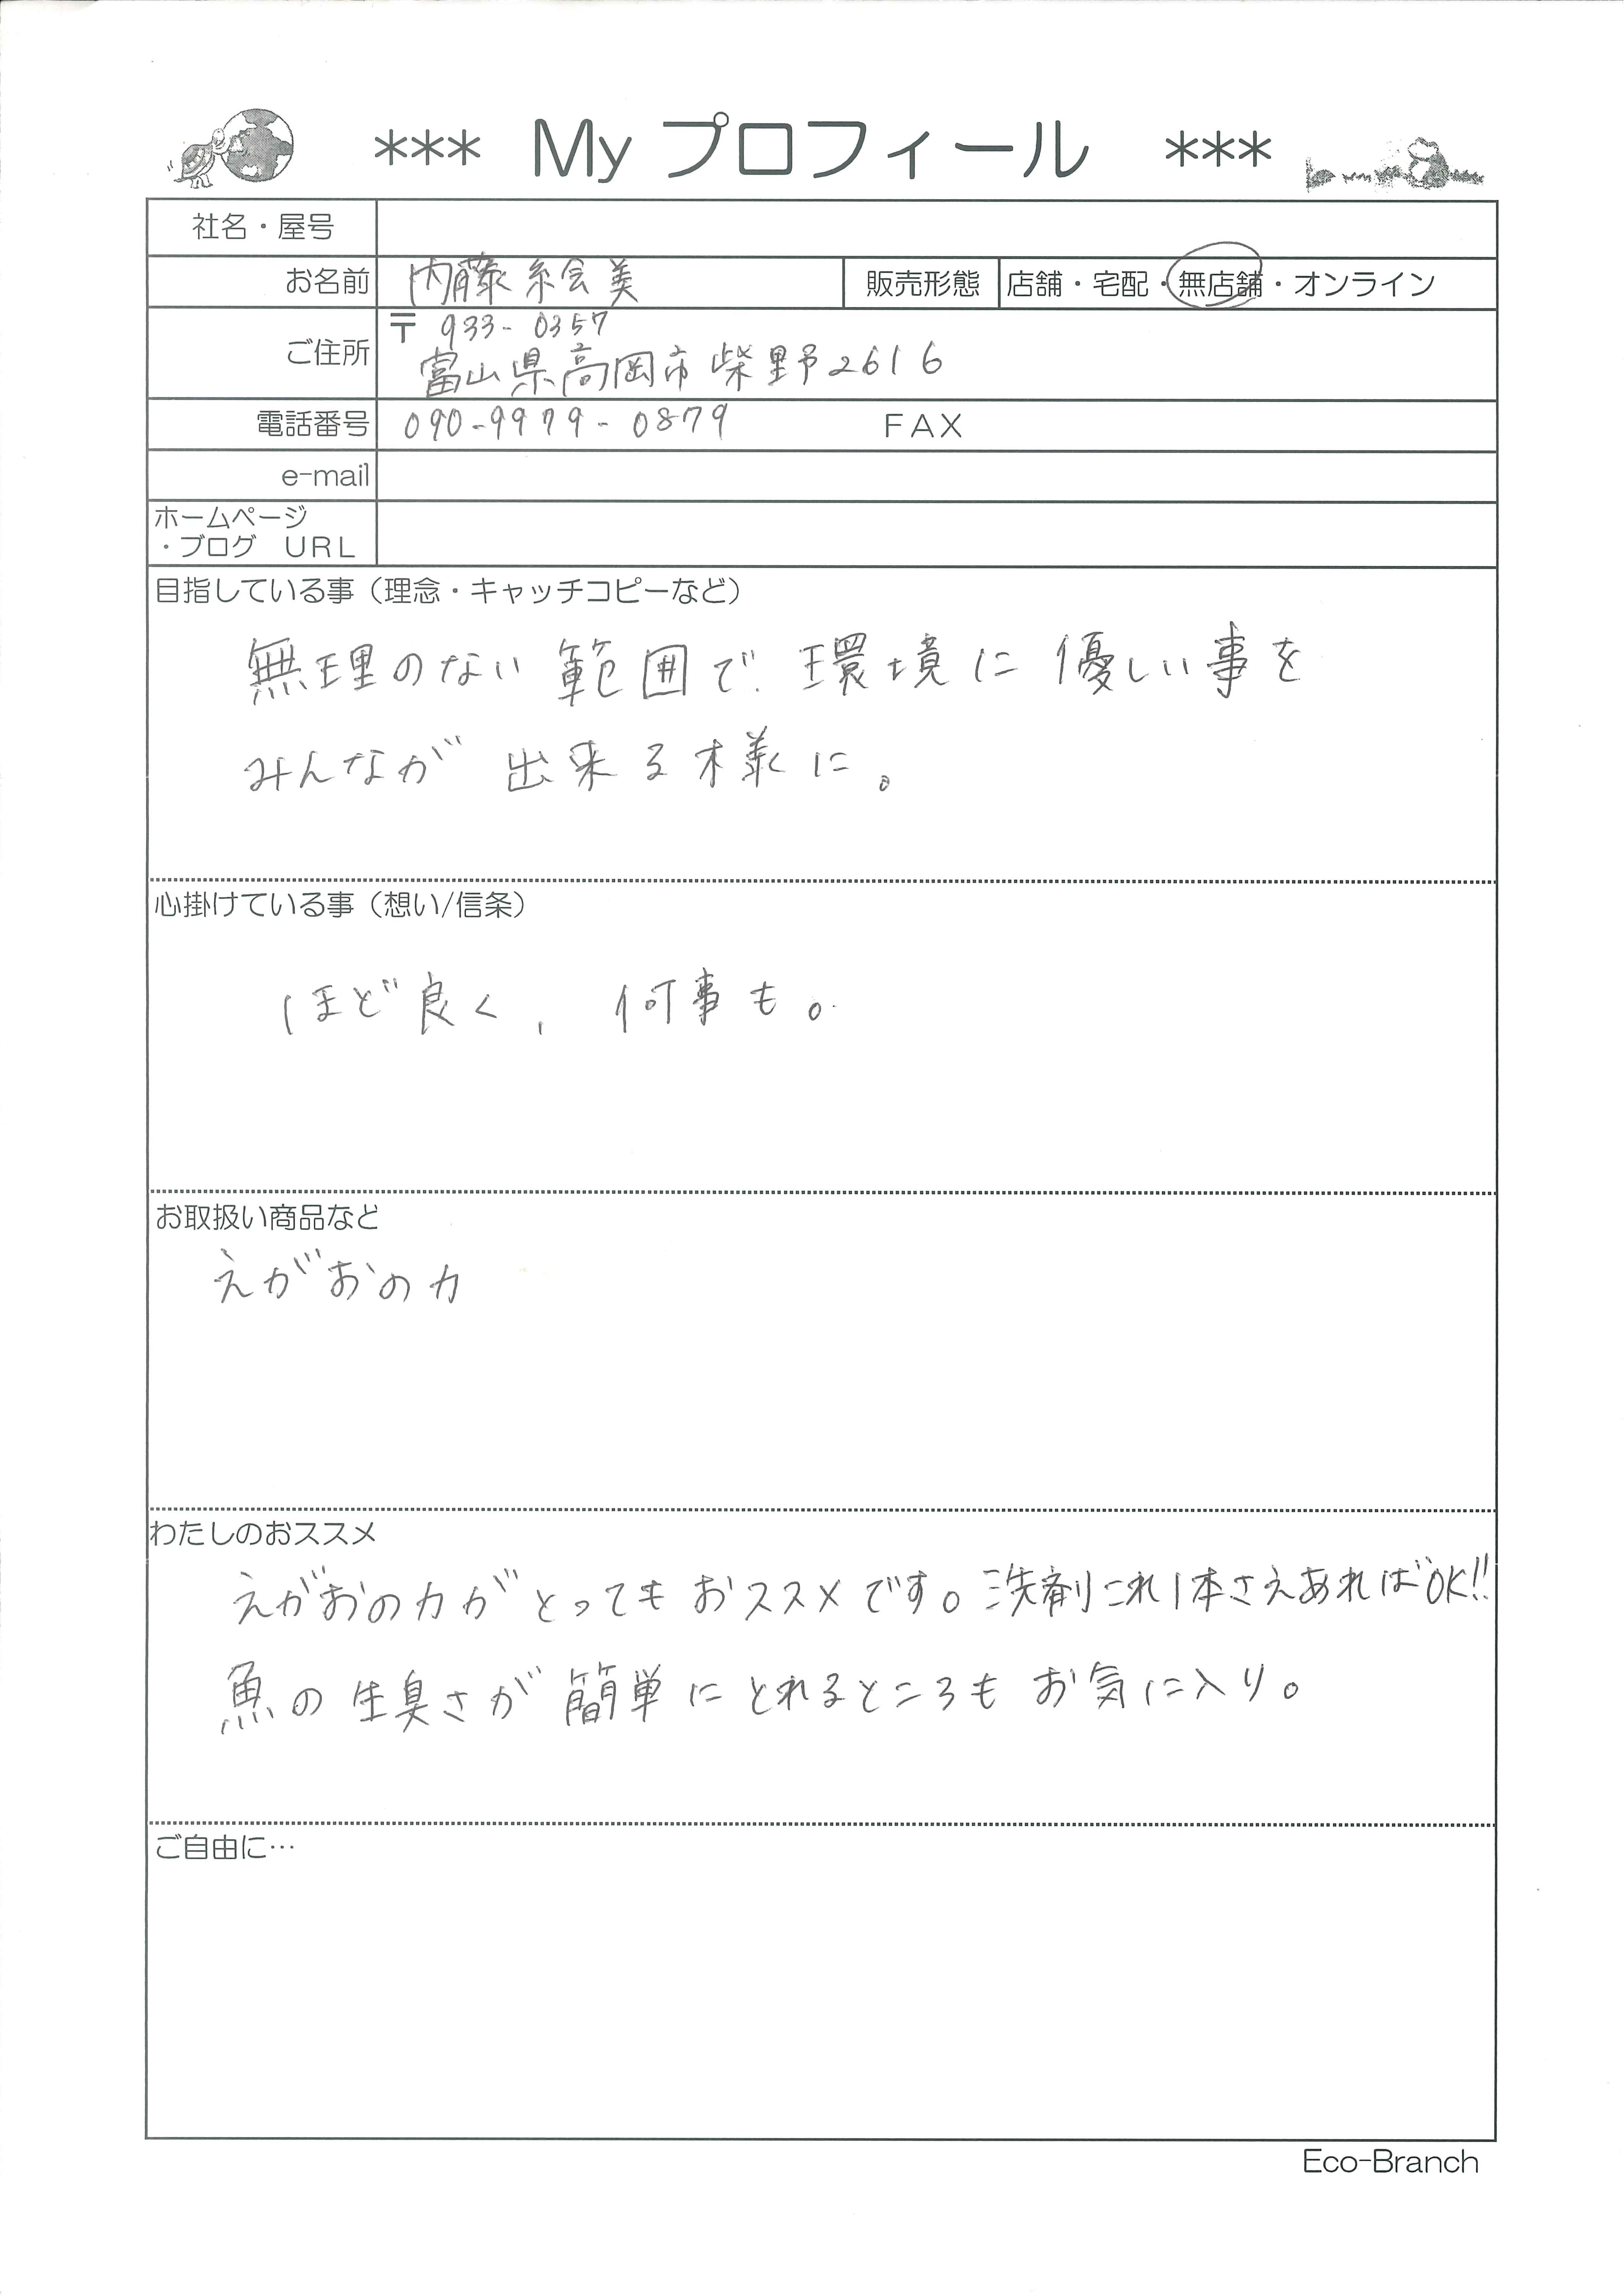 *** My プロフィール ***
社名・屋号
お名前 内藤 絵美 販売形態 店舗・宅配・無店舗・オンライン
ご住所 〒 933-0357
富山県高岡市柴野2616
電話番号 090-9979-0879 FAX
e-mail
ホームページ
・ブログ URL
目指している事（理念・キャッチコピーなど）
無理のない範囲で環境に優しい事を
みんなが出来る様に。
心掛けている事（想い/信条）
ほど良く、何事も。
お取扱い商品など
えがおの力
わたしのおススメ
えがおの力がとってもおススメです。洗剤これ1本さえあればOK!!
魚の生臭さが簡単にとれるところもお気に入り。
ご自由に…
Eco-Branch